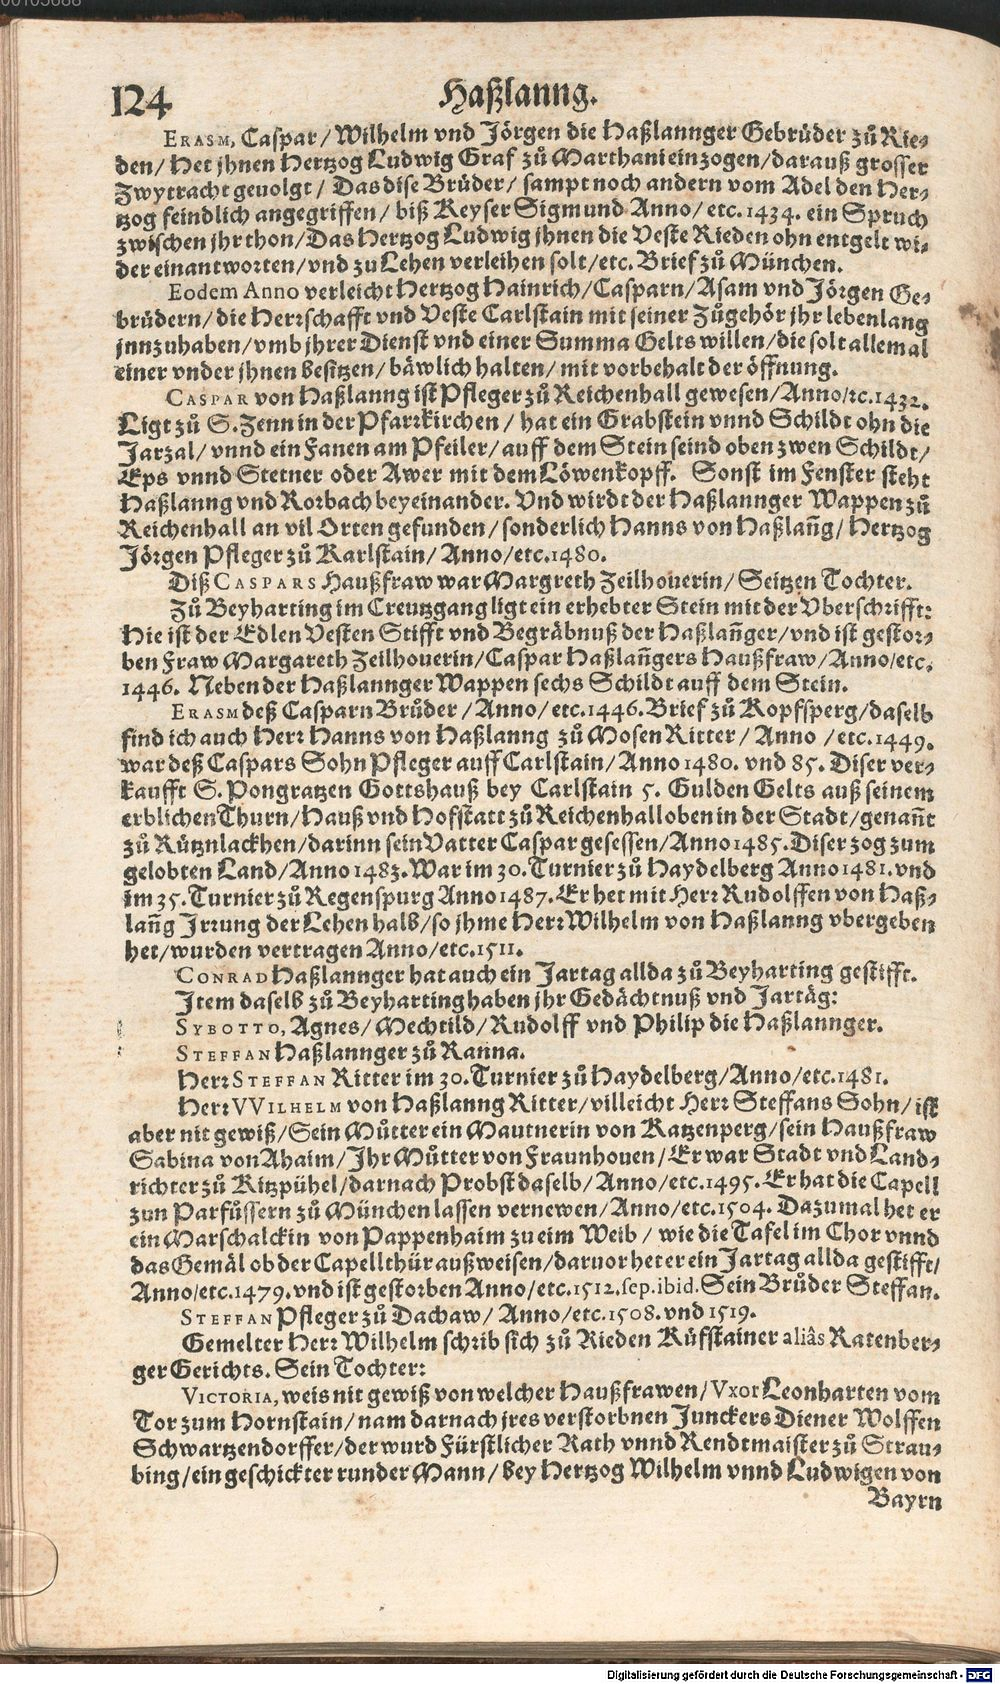 00103088
124 Haßlanng.
ERASM, Caspar/ Wilhelm vnd Jörgen die Haßlannger Gebrüder zů Rie-
den/ Het jhnen Hertzog Ludwig Graf zů Marthani einzogen/ darauß grosser
Zwytracht geuolgt/ Das dise Brüder/ sampt noch andern vom Adel den Her-
tzog feindlich angegriffen/ biß Keyser Sigmund Anno/ etc. 1434. ein Spruch
zwischen jhr thon/ Das Hertzog Ludwig jhnen die Veste Rieden ohn entgelt wi-
der einantworten/ vnd zu Lehen verleihen solt/ etc. Brief zů München.
Eodem Anno verleicht Hertzog Hainrich/ Casparn/ Asam vnd Jörgen Ge-
brüdern/ die Herrschafft vnd Veste Carlstain mit seiner Zůgehör jhr lebenlang
jnnzuhaben/ vmb jhrer Dienst vnd einer Summa Gelts willen/ die solt allemal
einer vnder jhnen besitzen/ bäwlich halten/ mit vorbehalt der öffnung.
CASPAR von Haßlanng ist Pfleger zů Reichenhall gewesen/ Anno/ ꝛc. 1432.
Ligt zů S. Zenn in der Pfarrkirchen/ hat ein Grabstein vnnd Schildt ohn die
Jarzal/ vnnd ein Fanen am Pfeiler/ auff dem Stein seind oben zwen Schildt/
Eps vnnd Stetner oder Awer mit dem Löwenkopff. Sonst im Fenster steht
Haßlanng vnd Rorbach beyeinander. Vnd wirdt der Haßlannger Wappen zů
Reichenhall an vil Orten gefunden/ sonderlich Hanns von Haßlañg/ Hertzog
Jörgen Pfleger zů Karlstain/ Anno/ etc. 1480.
Diß CASPARS Haußfraw war Margreth Zeilhouerin/ Seitzen Tochter.
Zů Beyharting im Creutzgang ligt ein erhebter Stein mit der Vberschrifft:
Hie ist der Edlen Vesten Stifft vnd Begräbnuß der Haßlañger/ vnd ist gestor-
ben Fraw Margareth Zeilhouerin/ Caspar Haßlañgers Haußfraw/ Anno/ etc.
1446. Neben der Haßlannger Wappen sechs Schildt auff dem Stein.
ERASM deß Casparn Brůder/ Anno/ etc. 1446. Brief zů Kopfsperg/ daselb
find ich auch Herr Hanns von Haßlanng zů Mosen Ritter/ Anno/ etc. 1449.
war deß Caspars Sohn Pfleger auff Carlstain/ Anno 1480. vnd 85. Diser ver-
kaufft S. Pongratzen Gottshauß bey Carlstain 5. Gulden Gelts auß seinem
erblichen Thurn/ Hauß vnd Hofstatt zů Reichenhall oben in der Stadt/ genañt
zů Rütznlackhen/ darinn sein Vatter Caspar gesessen/ Anno 1485. Diser zog zum
gelobten Land/ Anno 1483. War im 30. Turnier zů Haydelberg Anno 1481. vnd
im 35. Turnier zů Regenspurg Anno 1487. Er het mit Herr Rudolffen von Haß-
lañg Irrung der Lehen halb/ so jhme Herr Wilhelm von Haßlanng vbergeben
het/ wurden vertragen Anno/ etc. 1511.
CONRAD Haßlannger hat auch ein Jartag allda zů Beyharting gestifft.
Item daselb zů Beyharting haben jhr Gedächtnuß vnd Jartäg:
SYBOTTO, Agnes/ Mechtild/ Rudolff vnd Philip die Haßlannger.
STEFFAN Haßlannger zů Ranna.
Herr STEFFAN Ritter im 30. Turnier zů Haydelberg/ Anno/ etc. 1481.
Herr VVILHELM von Haßlanng Ritter/ villeicht Herr Steffans Sohn/ ist
aber nit gewiß/ Sein Můtter ein Mautnerin von Katzenperg/ sein Haußfraw
Sabina von Ahaim/ Jhr Můtter von Fraunhouen/ Er war Stadt vnd Land-
richter zů Kitzpühel/ darnach Probst daselb/ Anno/ etc. 1495. Er hat die Capell
zun Parfüssern zů München lassen vernewen/ Anno/ etc. 1504. Dazumal het er
ein Marschalckin von Pappenhaim zu eim Weib/ wie die Tafel im Chor vnnd
das Gemäl ob der Capellthür außweisen/ daruor het er ein Jartag allda gestifft/
Anno/ etc. 1479. vnd ist gestorben Anno/ etc. 1512. sep. ibid. Sein Brůder Steffan.
STEFFAN Pfleger zů Dachaw/ Anno/ etc. 1508. vnd 1519.
Gemelter Herr Wilhelm schrib sich zů Rieden Kůfstainer aliâs Ratenber-
ger Gerichts. Sein Tochter:
VICTORIA, weis nit gewiß von welcher Haußfrawen/ Vxor Leonharten vom
Tor zum Hornstain/ nam darnach jres verstorbnen Junckers Diener Wolffen
Schwartzendorffer/ der wurd Fürstlicher Rath vnnd Rendtmaister zů Strau-
bing/ ein geschickter runder Mann/ bey Hertzog Wilhelm vnnd Ludwigen von
Bayrn
Digitalisierung gefördert durch die Deutsche Forschungsgemeinschaft - DFG